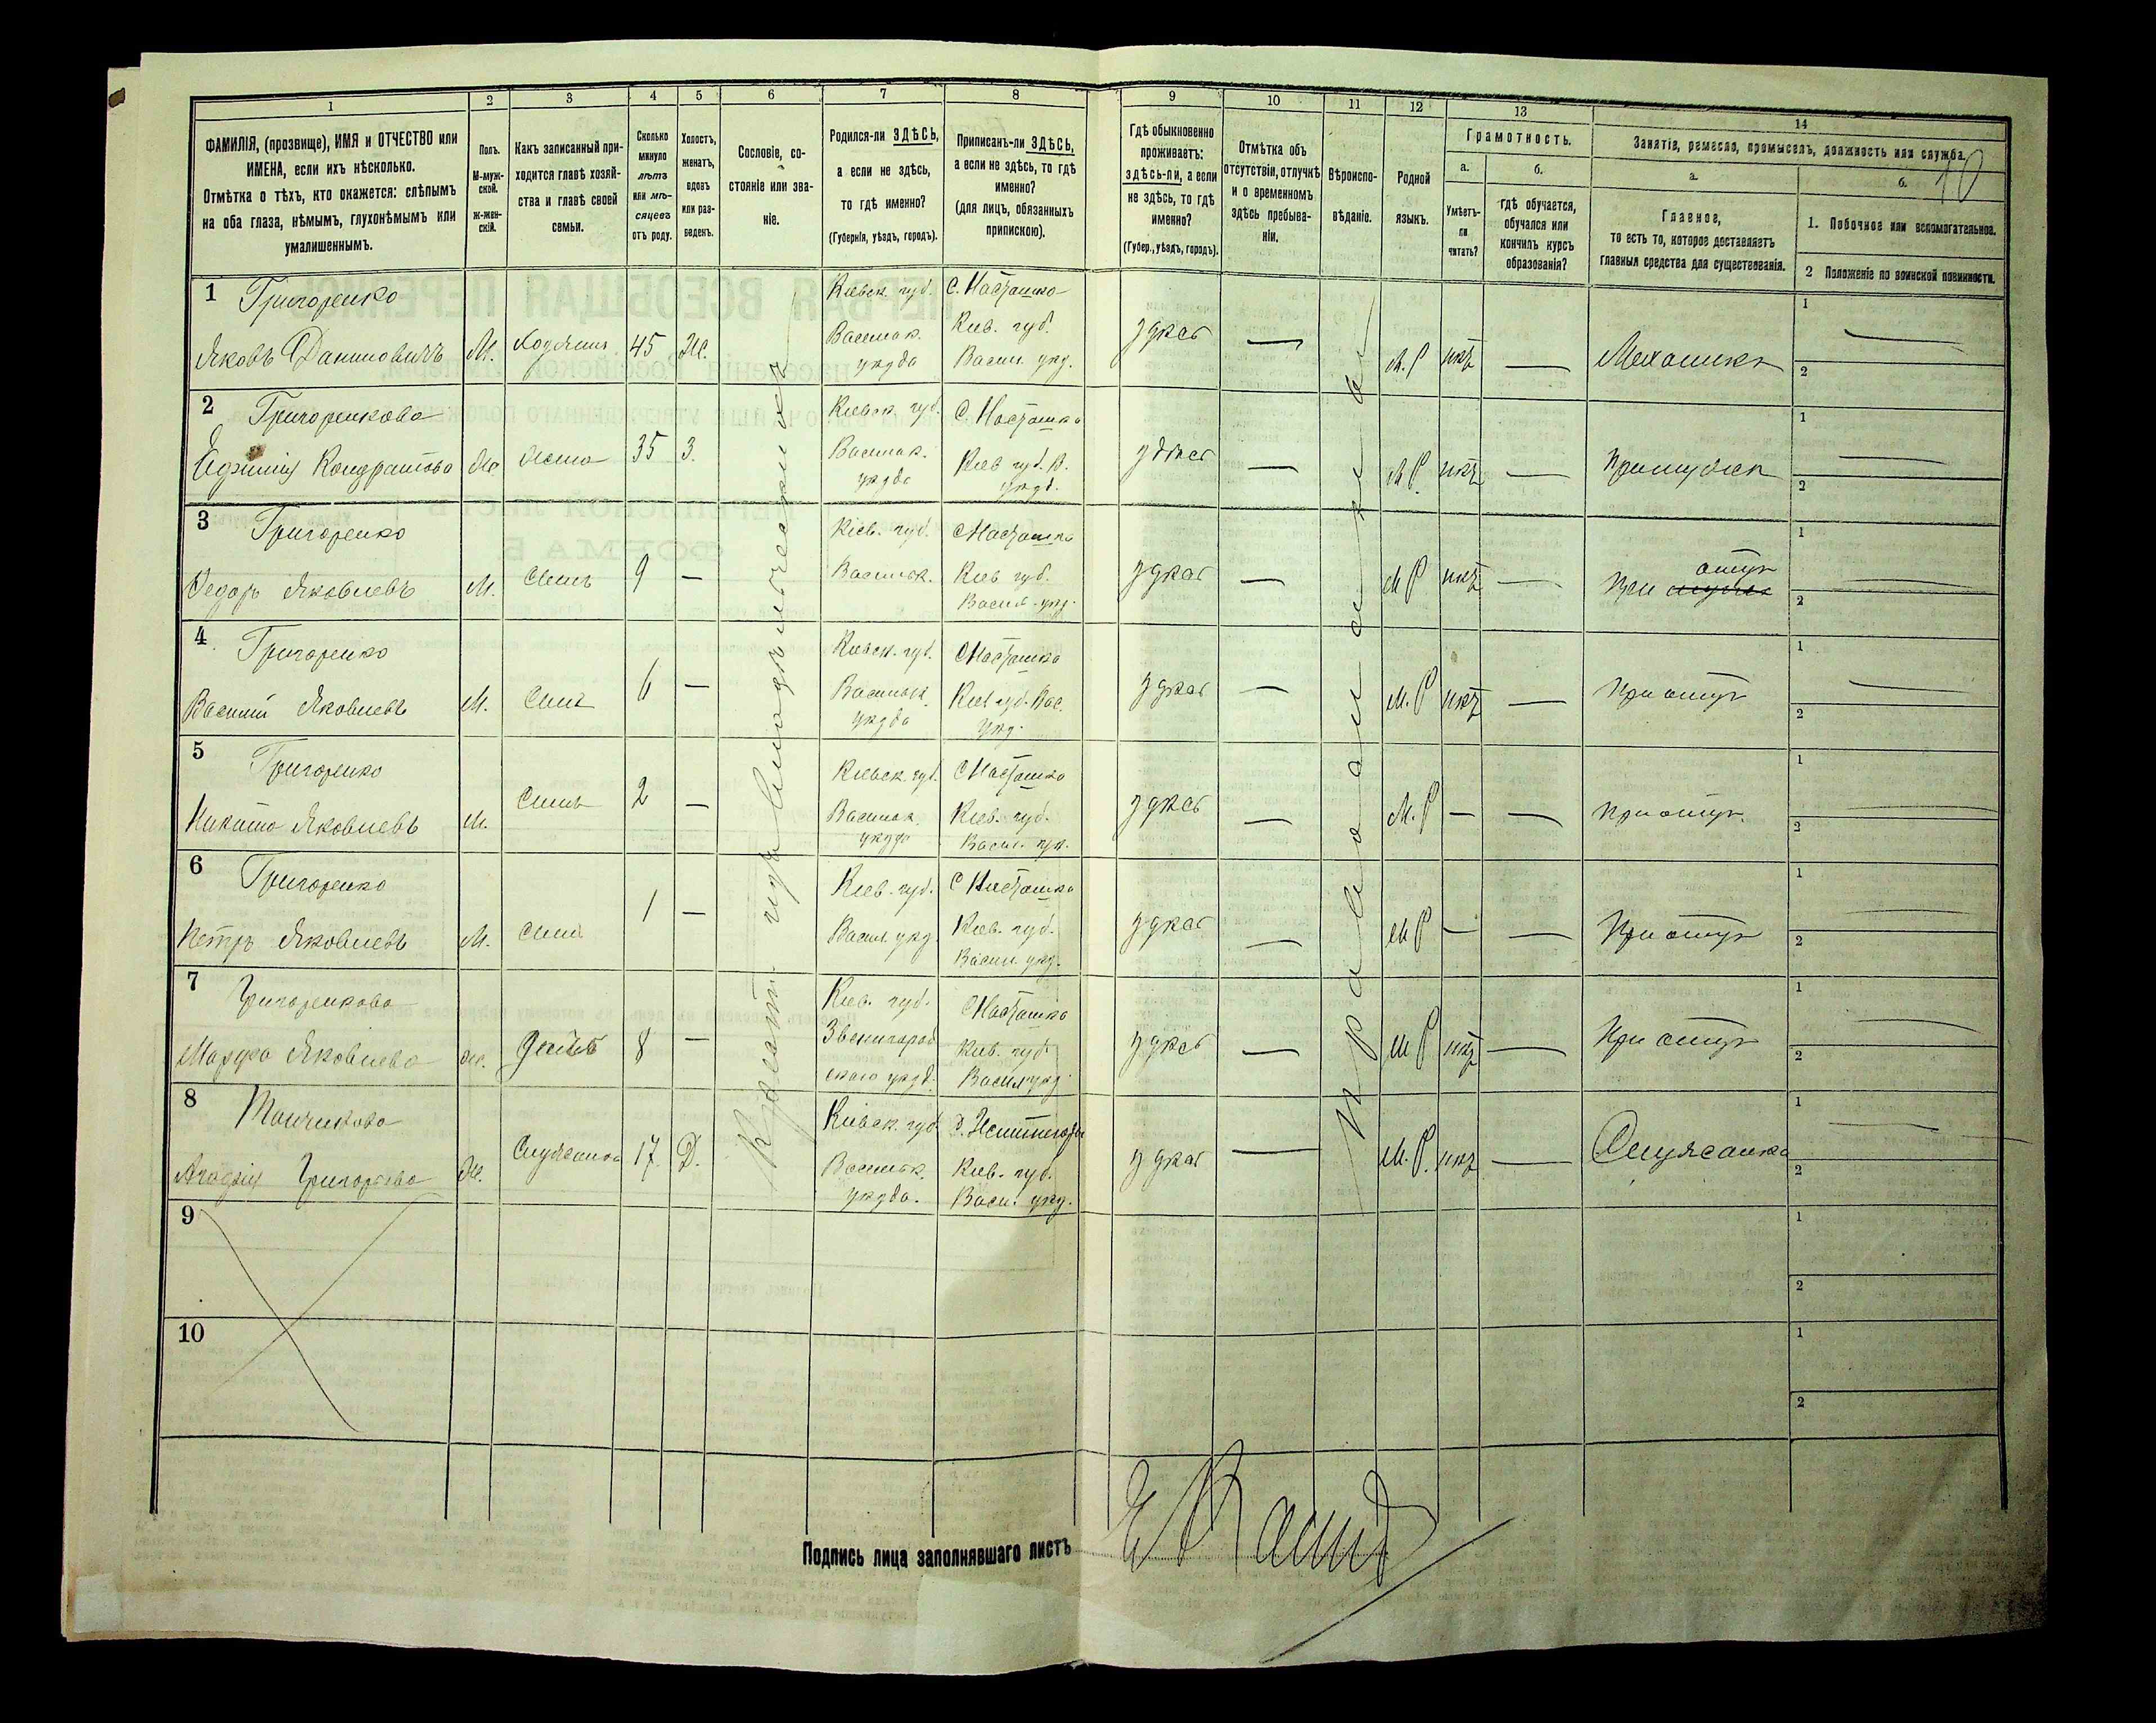 1
2
3
4
5
6
7
8
9
10
11
12
13
14
ФАМИЛІЯ, (прозвище), ИМЯ и ОТЧЕСТВО или
ИМЕНА, если ихъ нѣсколько.
Отмѣтка о тѣхъ, кто окажется: слѣпымъ
на оба глаза, нѣмымъ, глухонѣмымъ или
умалишеннымъ.
Полъ.
М-муж-
ской.
Ж-жен-
скій.
Какъ записанный при-
ходится главѣ хозяй-
ства и главѣ своей
семьи.
Сколько
минуло
лѣтъ
или мѣ-
сяцевъ
отъ роду.
Холостъ,
женатъ,
вдовъ
или раз-
веденъ.
Сословіе, со-
стояніе или зва-
ніе.
Родился-ли ЗДѢСЬ,
а если не здѣсь,
то гдѣ именно?
(Губернія, уѣздъ, городъ).
Приписанъ-ли ЗДѢСЬ,
а если не здѣсь, то гдѣ
именно?
(для лицъ, обязанныхъ
припискою).
Гдѣ обыкновенно
проживаетъ:
здѣсь-ли, а если
не здѣсь, то гдѣ
именно?
(Губер., уѣздъ, городъ).
Отмѣтка объ
отсутствіи, отлучкѣ
и о временномъ
здѣсь пребыва-
ніи.
Вѣроиспо-
вѣданіе.
Родной
языкъ.
Грамотность.
а.
Умѣетъ-
ли
читать?
б.
гдѣ обучается,
обучался или
кончилъ курсъ
образованія?
Занятіе, ремесло, промыселъ, должность или служба.
10
а.
Главное,
то есть то, которое доставляетъ
главныя средства для существованія.
б.
1. Побочное или вспомогательное.
2 Положеніе по воинской повинности.
1 Григоренко Кіевск. губ. С. Насташка 1
Яковъ Даниловичъ М. Хозяинъ 45 Ж. Васильк. уѣзда Кив. губ. Васил. уѣд. здѣсь — М.Р нѣт — Механикъ 2
2 Григоренкова Кіевск. губ. С. Насташка 1
Ефимія Кондратова Ж. Жена 35 З. Васильк. уѣзда Кіев губ. В. уѣзд. здѣсь — М Р. нѣт — При мужѣ 2
3 Григоренко Кіев. губ. С Насташка 1
Федоръ Яковлевъ М. Сынъ 9 — Васильк. Кіев губ. Васил. уѣд. здѣсь — М Р нѣт — При отцѣ 2
4 Григоренко Кіевск. губ. С Насташка 1
Василій Яковлевъ М. Сынъ 6 — Васильк. уѣзда Кіев губ. Вас. уѣд. здѣсь — М. Р нѣт — При отцѣ 2
5 Григоренко Кіевск. губ. С Насташка 1
Никита Яковлевъ М. Сынъ 2 — Васильк. уѣзда Кіев. губ. Васил. уѣ. здѣсь — М. Р — — При отцѣ 2
6 Григоренко Кіев. губ. С Насташка 1
Петръ Яковлевъ М. Сынъ 1 — Васил. уѣд. Кіев. губ. Васил. уѣд. здѣсь — М Р — — При отцѣ 2
7 Григоренкова Кіев. губ. С Насташка 1
Яковлева Ж. 8 — Звенигород скаго уѣзд. Кив. губ. Васил уѣд. здѣсь — М Р нѣт — При отцѣ 2
8 Кіевск. губ. 1
Григорьева Ж. Служанка 17. Д. Васильк. уѣзда. Кив. губ. Васил. уѣд. здѣсь — М. Р. нѣт — Служанка 2
Крестьянe изъ владѣльческихъ
Православныя
9
1
2
10
1
2
Подпись лица заполнявшаго листъ